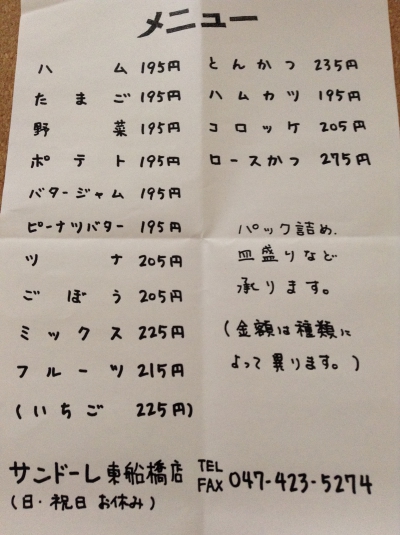 メニュー
ハム 195円
たまご 195円
野菜 195円
ポテト 195円
バタージャム 195円
ピーナツバター 195円
ツナ 205円
ごぼう 205円
ミックス 225円
フルーツ 215円
(いちご 225円)
とんかつ 235円
ハムカツ 195円
コロッケ 205円
ロースかつ 275円
パック詰め.
皿盛りなど
承ります。
(金額は種類に
よって異ります。)
サンドーレ東船橋店
(日・祝日 お休み)
TEL
FAX 047-423-5274